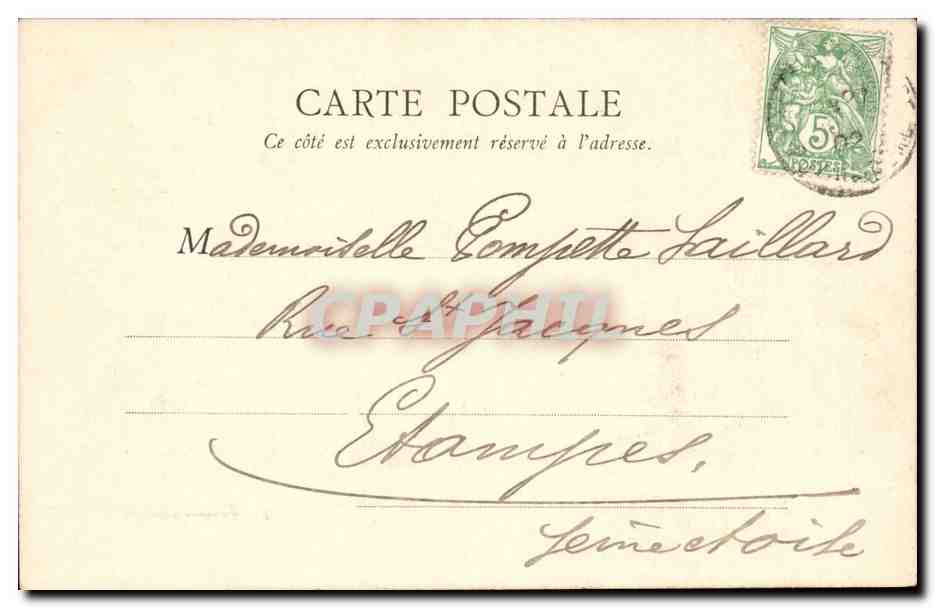 CARTE POSTALE
Ce côté est exclusivement réservé à l'adresse.
5
POSTES
02
Mademoiselle Pompette Saillard
Rue St Jacques
CPAPHIL
Etampes,
Seine et oise